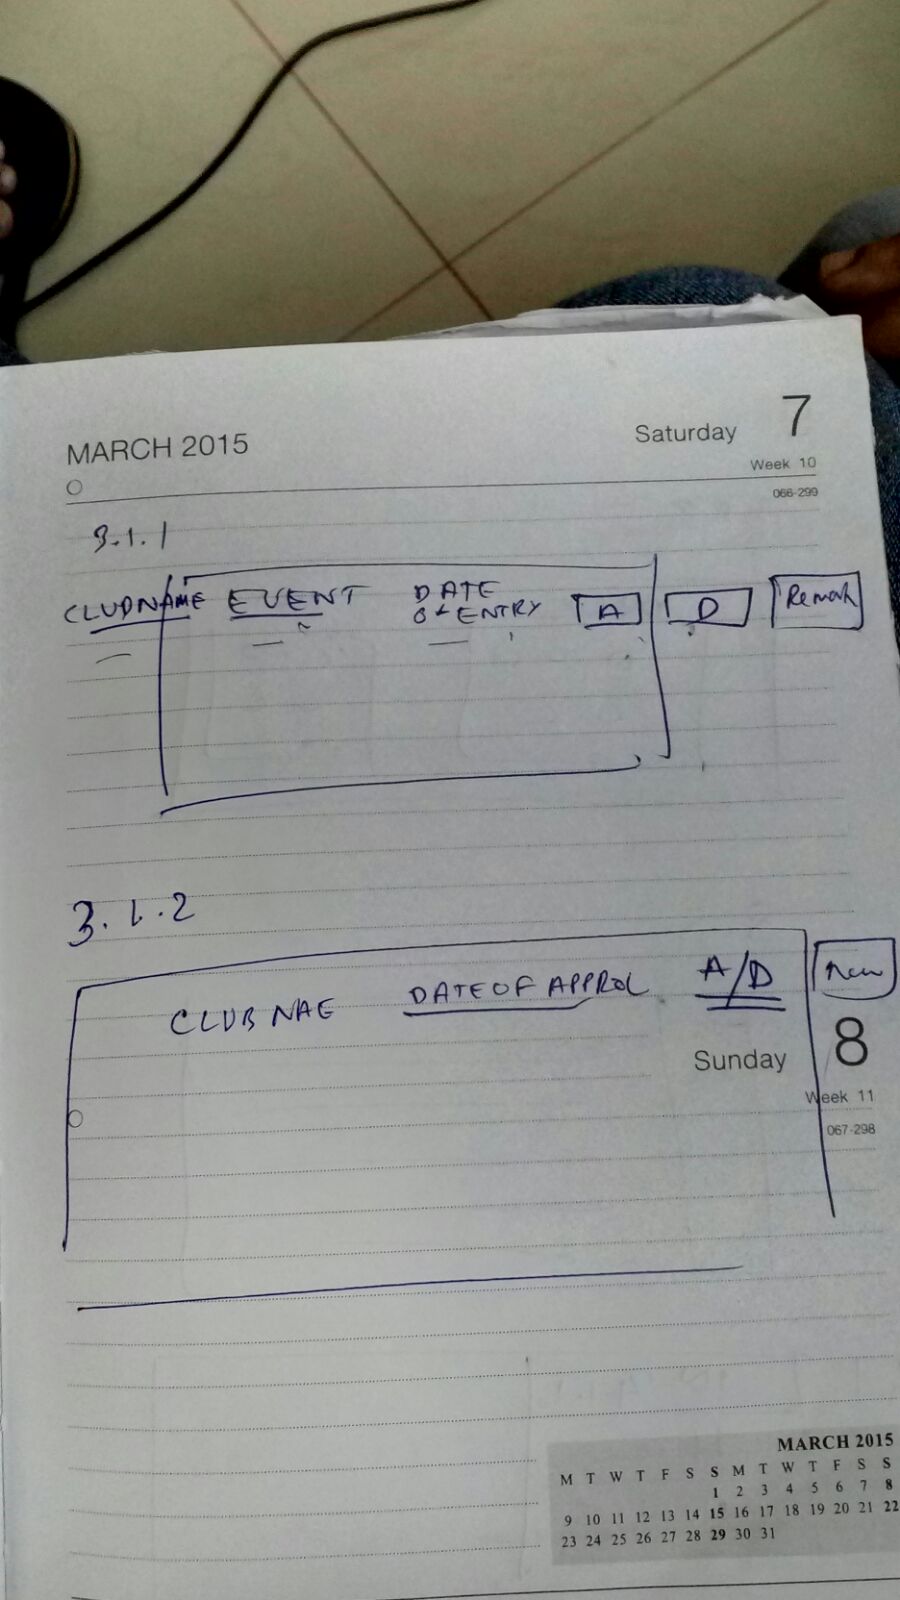 MARCH 2015 Saturday 7
Week 10
066-299
3.1.1
CLUDNAME EVENT DATE A D Remark
OF ENTRY
3.1.2
CLUB NAE DATE OF APPROL A/D
Sunday 8
Week 11
067-298
MARCH 2015
M T W T F S S M T W T F S S
1 2 3 4 5 6 7 8
9 10 11 12 13 14 15 16 17 18 19 20 21 22
23 24 25 26 27 28 29 30 31